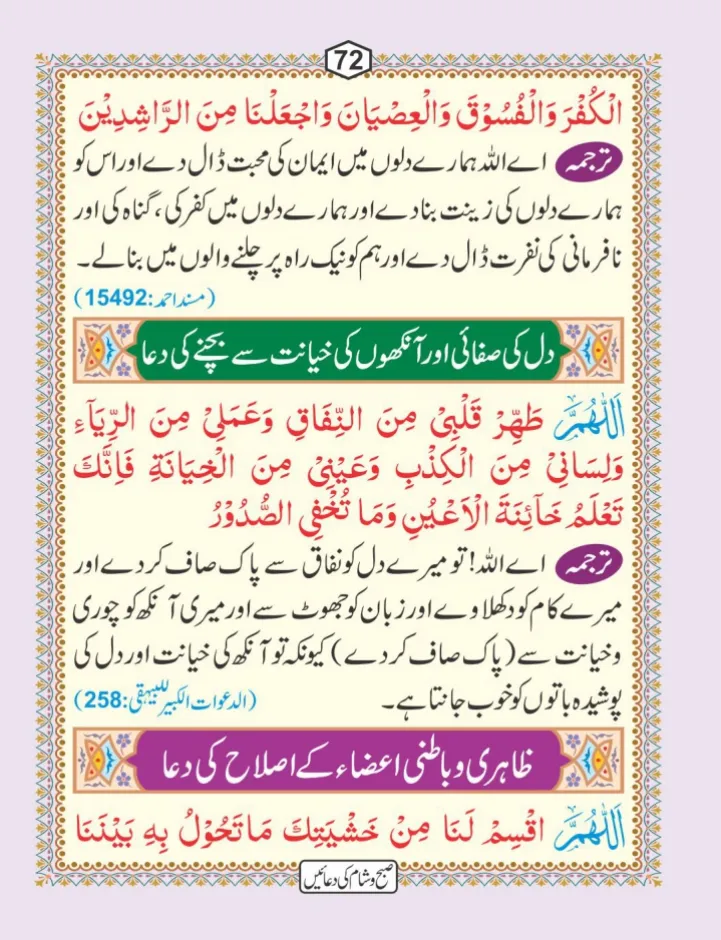 72
الْكُفْرَ وَالْفُسُوْقَ وَالْعِصْيَانَ وَاجْعَلْنَا مِنَ الرَّاشِدِيْنَ
ترجمہ اے اللہ ہمارے دلوں میں ایمان کی محبت ڈال دے اور اس کو
ہمارے دلوں کی زینت بنادے اور ہمارے دلوں میں کفر کی، گناہ کی اور
نافرمانی کی نفرت ڈال دے اور ہم کو نیک راہ پر چلنے والوں میں بنالے۔
(مسند احمد:15492)
دل کی صفائی اور آنکھوں کی خیانت سے بچنے کی دعا
اَللّٰهُمَّ طَهِّرْ قَلْبِيْ مِنَ النِّفَاقِ وَعَمَلِيْ مِنَ الرِّيَآءِ
وَلِسَانِيْ مِنَ الْكِذْبِ وَعَيْنِيْ مِنَ الْخِيَانَةِ فَاِنَّكَ
تَعْلَمُ خَآئِنَةَ الْاَعْيُنِ وَمَا تُخْفِي الصُّدُوْرُ
ترجمہ اے اللہ! تو میرے دل کو نفاق سے پاک صاف کردے اور
میرے کام کو دکھلاوے اور زبان کو جھوٹ سے اور میری آنکھ کو چوری
و خیانت سے (پاک صاف کردے) کیونکہ تو آنکھ کی خیانت اور دل کی
پوشیدہ باتوں کو خوب جانتا ہے۔ (الدعوات الکبیر للبیہقی:258)
ظاہری و باطنی اعضاء کے اصلاح کی دعا
اَللّٰهُمَّ اقْسِمْ لَنَا مِنْ خَشْيَتِكَ مَا تَحُوْلُ بِهٖ بَيْنَنَا
صبح و شام کی دعائیں